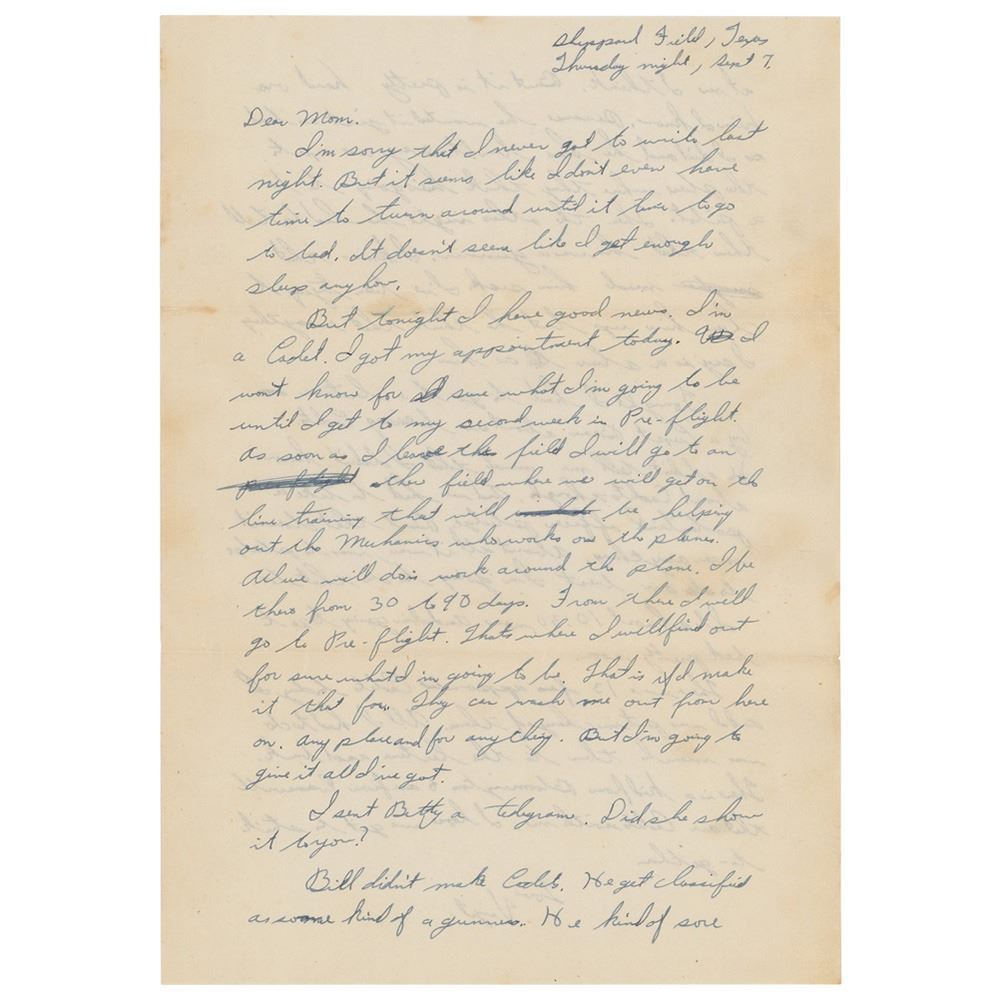 Sheppard Field, Texas
Thursday night, Sept 7.
Dear Mom.
I'm sorry that I never got to write last
night. But it seems like I don't even have
time to turn around until it time to go
to bed. It doesn't seem like I get enough
sleep anyhow.
But tonight I have good news. I'm
a Cadet. I got my appointment today. I
won't know for sure what I'm going to be
until I get to my second week in Pre-flight.
As soon as I leave this field I will go to an
other field where we will get on the
line training that will be helping
out the Mechanics who works on the planes.
All we will do is work around the plane. I be
there from 30 to 90 days. From there I will
go to Pre-flight. Thats where I will find out
for sure what I'm going to be. That is if I'd make
it that far. They can wash me out from here
on. Any place and for any thing. But I'm going to
give it all I've got.
I sent Betty a telegram. Did she show
it to you?
Bill didn't make Cadets. He got classified
as some kind of a gunner. He kind of sore